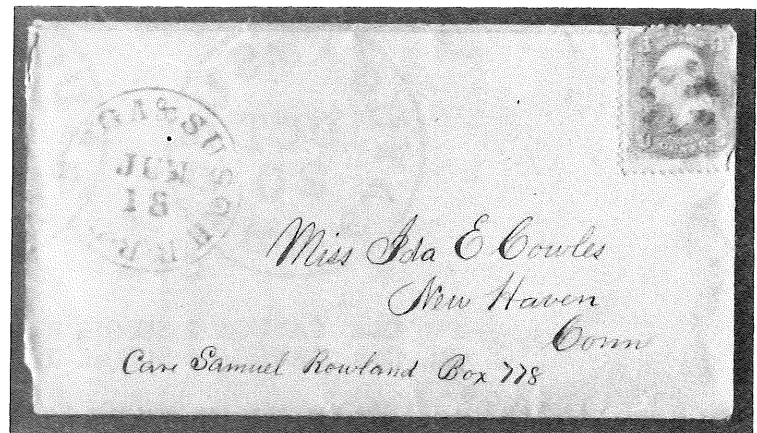 JUN
18
Miss Ida E Cowles
New Haven
Conn
Care Samuel Rowland Box 778